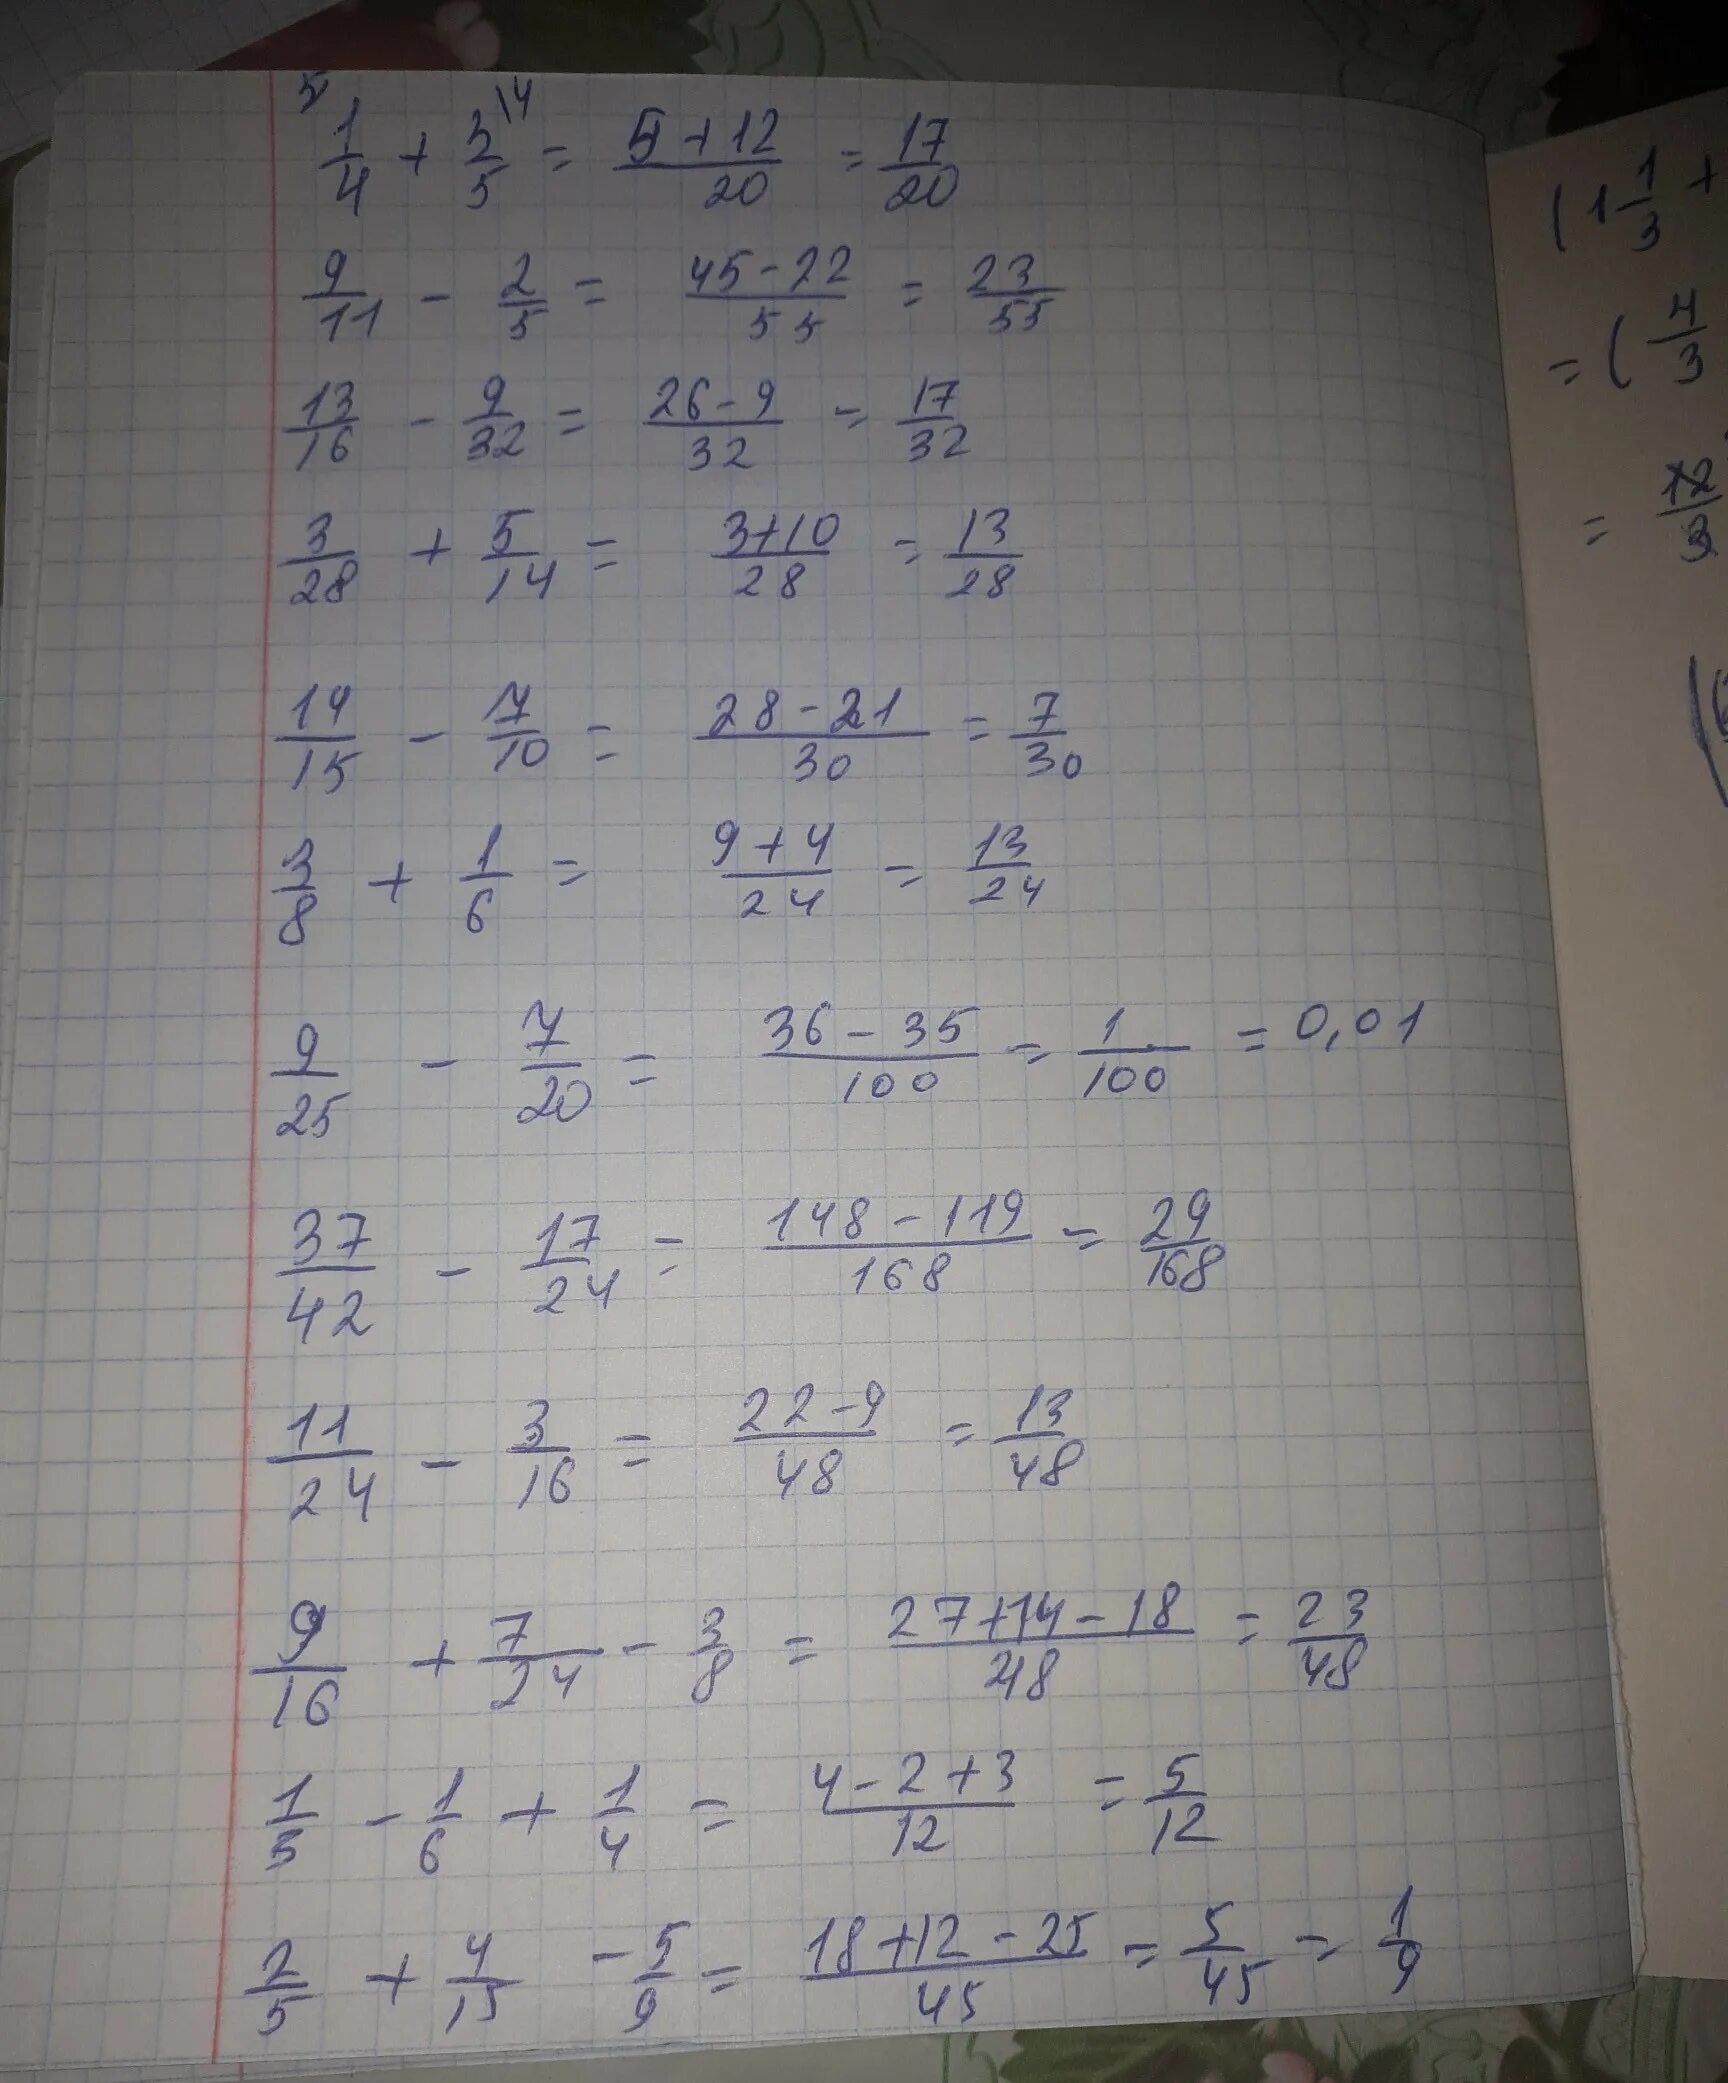 5 1/4 + 3/5 14 = 5+12/20 = 17/20
9/11 - 2/5 = 45-22/55 = 23/55
13/16 - 9/32 = 26-9/32 = 17/32
3/28 + 5/14 = 3+10/28 = 13/28
14/15 - 7/10 = 28-21/30 = 7/30
3/8 + 1/6 = 9+4/24 = 13/24
9/25 - 7/20 = 36-35/100 = 1/100 = 0,01
37/42 - 17/24 = 148-119/168 = 29/168
11/24 - 3/16 = 22-9/48 = 13/48
9/16 + 7/24 - 3/8 = 27+14-18/48 = 23/48
1/3 - 1/6 + 1/4 = 4-2+3/12 = 5/12
2/5 + 4/15 - 5/9 = 18+12-25/45 = 5/45 = 1/9
(1 1/3 +
= (4/3
= 12/3